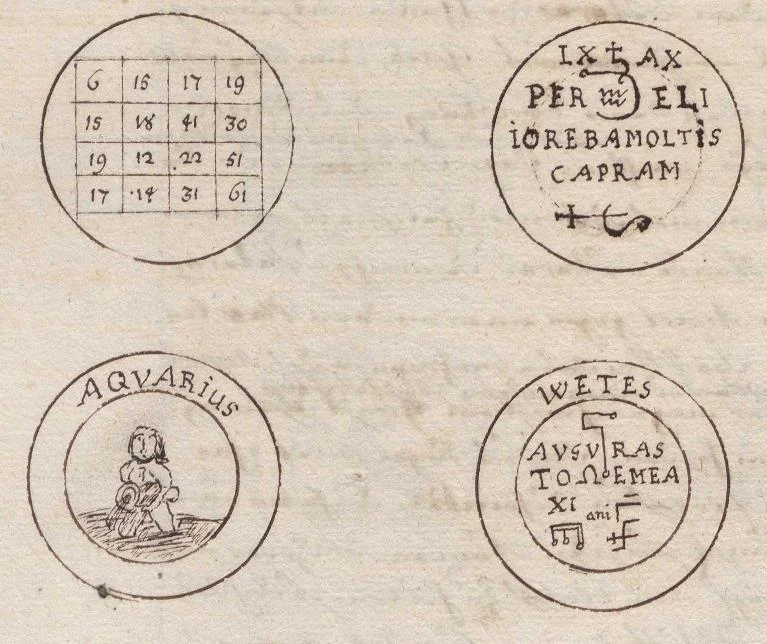 6 15 17 19
15 18 41 30
19 12 22 51
17 14 31 61
IX AX
PER ELI
iOREBAMOLTiS
CAPRAM
AQVARius
WETES
AVSV RAS
TOΩEMEA
XI ani